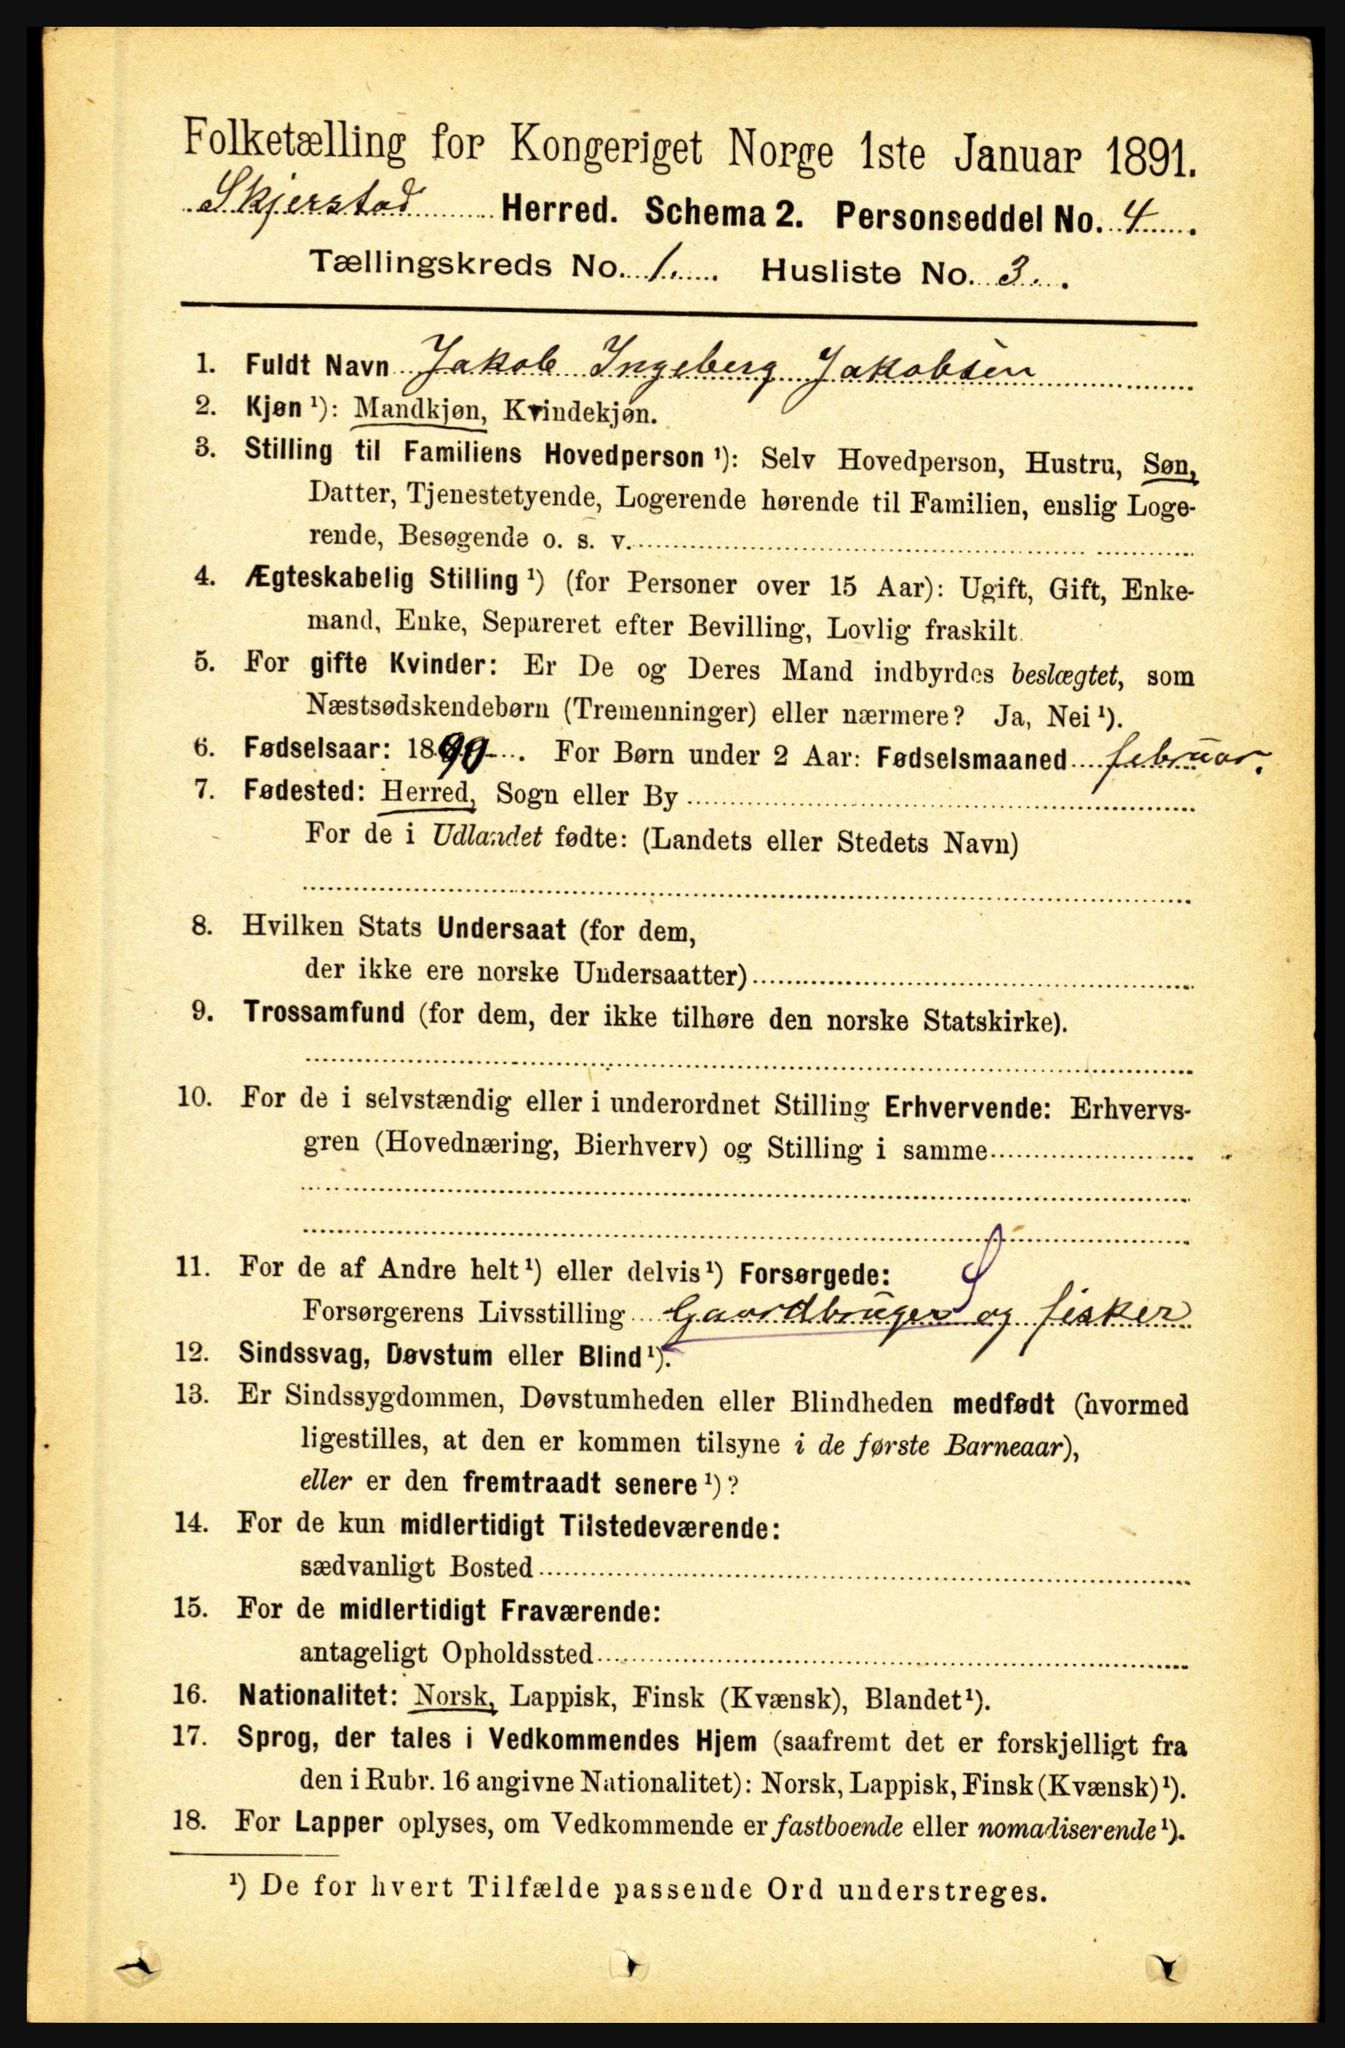 Folketælling for Kongeriget Norge 1ste Januar 1891.
Skjerstad Herred. Schema 2. Personseddel No. 4.
Tællingskreds No. 1. Husliste No. 3.
1. Fuldt Navn Jakob Ingeberg Jakobsen
2. Kjøn¹): Mandkjøn, Kvindekjøn.
3. Stilling til Familiens Hovedperson¹): Selv Hovedperson, Hustru, Søn,
Datter, Tjenestetyende, Logerende hørende til Familien, enslig Loge-
rende, Besøgende o. s. v.
4. Ægteskabelig Stilling¹) (for Personer over 15 Aar): Ugift, Gift, Enke-
mand, Enke, Separeret efter Bevilling, Lovlig fraskilt.
5. For gifte Kvinder: Er De og Deres Mand indbyrdes beslægtet, som
Næstsødskendebørn (Tremenninger) eller nærmere? Ja, Nei¹).
6. Fødselsaar: 1890. For Børn under 2 Aar: Fødselsmaaned februar.
7. Fødested: Herred, Sogn eller By
For de i Udlandet fødte: (Landets eller Stedets Navn)
8. Hvilken Stats Undersaat (for dem,
der ikke ere norske Undersaatter)
9. Trossamfund (for dem, der ikke tilhøre den norske Statskirke).
10. For de i selvstændig eller i underordnet Stilling Erhvervende: Erhvervs-
gren (Hovednæring, Bierhverv) og Stilling i samme
11. For de af Andre helt¹) eller delvis¹) Forsørgede:
Forsørgerens Livsstilling Gaardbruger og fisker
12. Sindssvag, Døvstum eller Blind¹).
13. Er Sindssygdommen, Døvstumheden eller Blindheden medfødt (hvormed
ligestilles, at den er kommen tilsyne i de første Barneaar),
eller er den fremtraadt senere¹)?
14. For de kun midlertidigt Tilstedeværende:
sædvanligt Bosted
15. For de midlertidigt Fraværende:
antageligt Opholdssted
16. Nationalitet: Norsk, Lappisk, Finsk (Kvænsk), Blandet¹).
17. Sprog, der tales i Vedkommendes Hjem (saafremt det er forskjelligt fra
den i Rubr. 16 angivne Nationalitet): Norsk, Lappisk, Finsk (Kvænsk)¹).
18. For Lapper oplyses, om Vedkommende er fastboende eller nomadiserende¹).
¹) De for hvert Tilfælde passende Ord understreges.